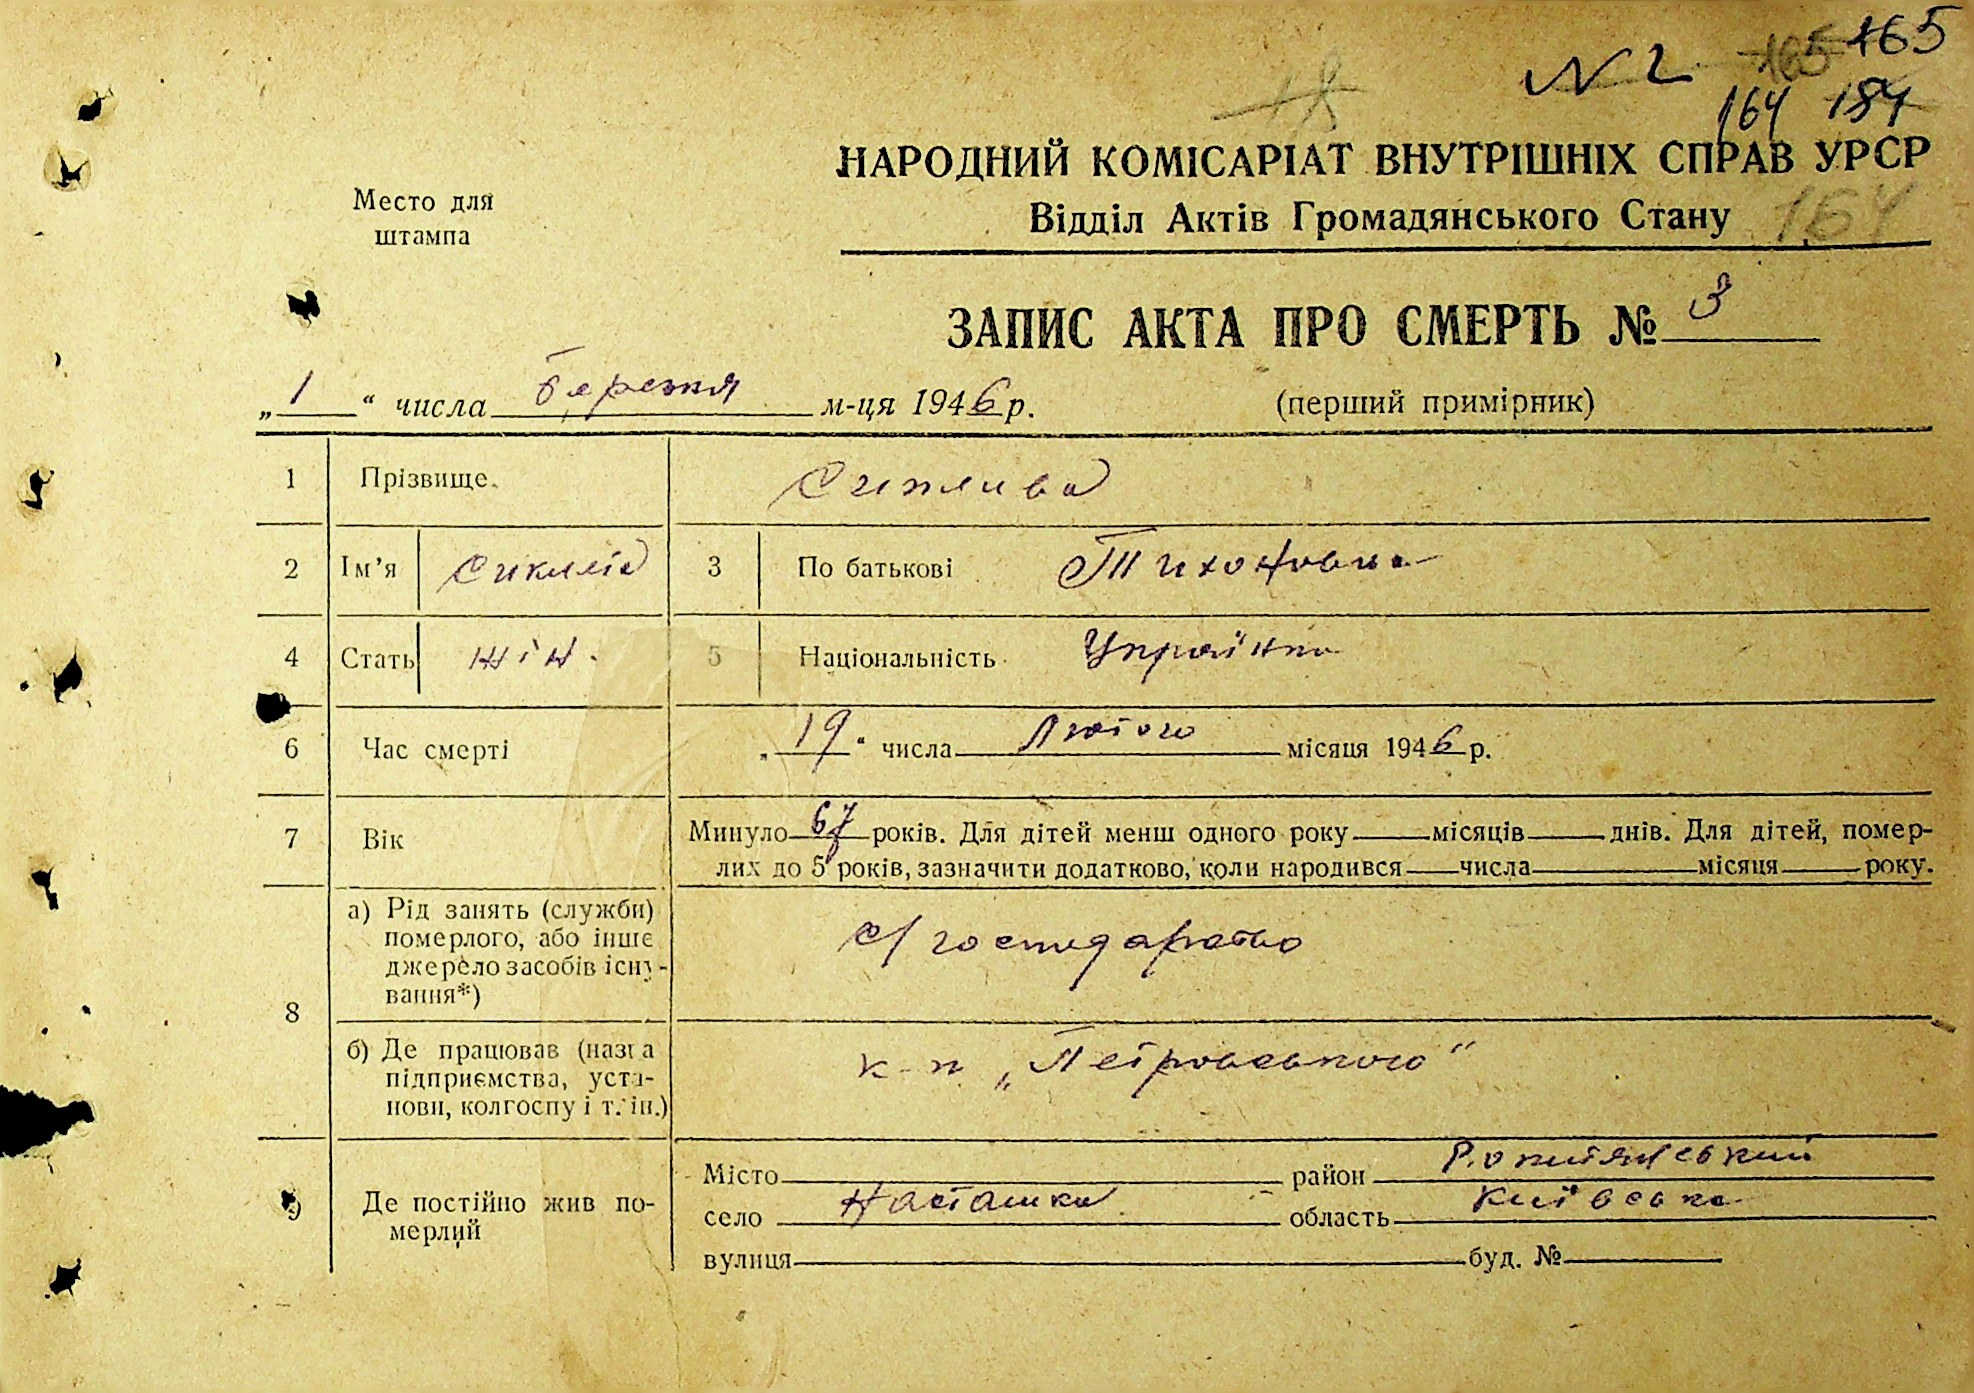 N 2 165 165
18 164 184
НАРОДНИЙ КОМІСАРІАТ ВНУТРІШНІХ СПРАВ УРСР
Место для штампа
Відділ Актів Громадянського Стану 164
ЗАПИС АКТА ПРО СМЕРТЬ № 3
„1“ числа березня м-ця 1946 р. (перший примірник)
1 Прізвище
2 Ім’я 3 По батькові Тихоновна
4 Стать жін. 5 Національність Українка
6 Час смерті „19“ числа Лютого місяця 1946 р.
7 Вік Минуло 67 років. Для дітей менш одного року місяців днів. Для дітей, помер-
лих до 5 років, зазначити додатково, коли народився числа місяця року.
8 а) Рід занять (служби)
померлого, або інше
джерело засобів існу-
вання*)
с/господарство
б) Де працював (назва
підприємства, уста-
нови, колгоспу і т. ін.)
к-п „Петровського“
9 Де постійно жив по-
мерлий
Місто район Рокитянський
село Насташка область Київська
вулиця буд. №